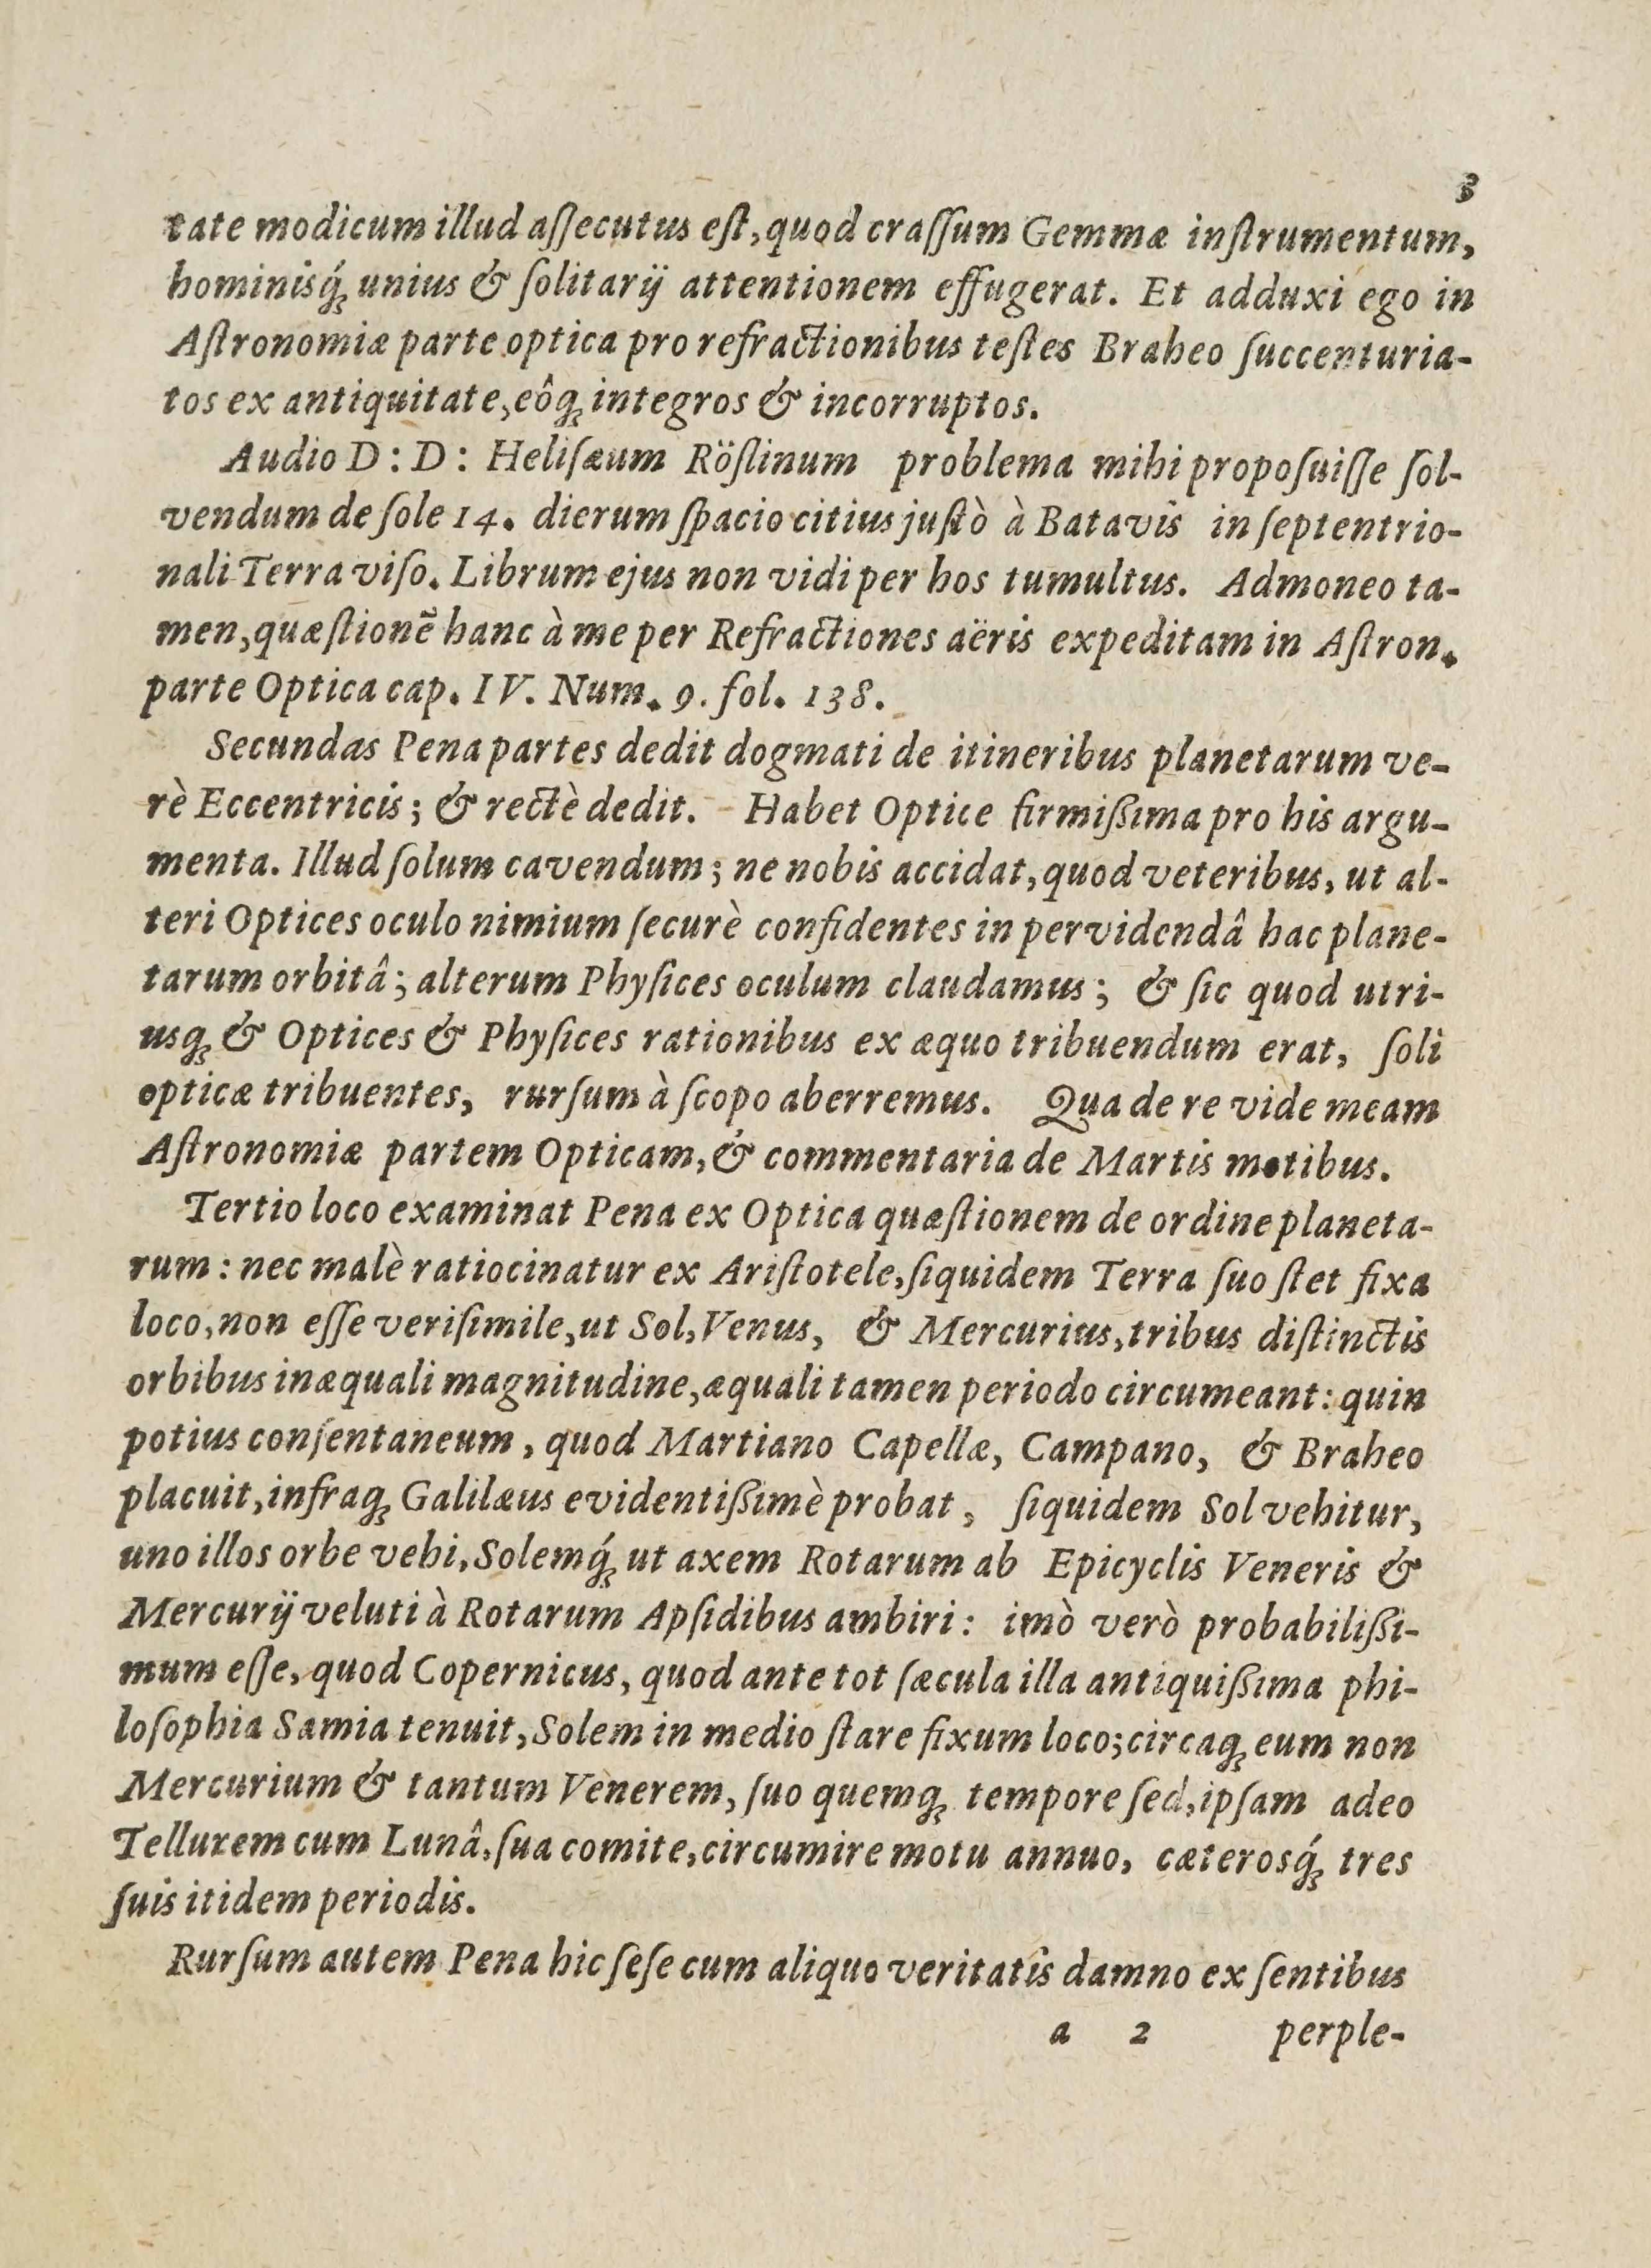 3
tate modicum illud aſſecutus eſt, quod craſſum Gemmæ inſtrumentum,
hominisq́ꝫ unius & ſolitarij attentionem effugerat. Et adduxi ego in
Aſtronomiæ parte optica pro refractionibus teſtes Braheo ſuccenturia-
tos ex antiquitate, eôqꝫ integros & incorruptos.
Audio D: D: Heliſæum Röſlinum problema mihi propoſuiſſe ſol-
vendum de ſole 14. dierum ſpacio citius juſtò à Batavis in ſeptentrio-
nali Terra viſo. Librum ejus non vidi per hos tumultus. Admoneo ta-
men, quæſtionẽ hanc à me per Refractiones aëris expeditam in Aſtron.
parte Optica cap. IV. Num. 9. fol. 138.
Secundas Pena partes dedit dogmati de itineribus planetarum ve-
rè Eccentricis; & rectè dedit. Habet Optice firmißima pro his argu-
menta. Illud ſolum cavendum; ne nobis accidat, quod veteribus, ut al-
teri Optices oculo nimium ſecurè confidentes in pervidendâ hac plane-
tarum orbitâ; alterum Phyſices oculum claudamus; & ſic quod utri-
usqꝫ & Optices & Phyſices rationibus ex æquo tribuendum erat, ſoli
opticæ tribuentes, rurſum à ſcopo aberremus. Qua de re vide meam
Aſtronomiæ partem Opticam, & commentaria de Martis motibus.
Tertio loco examinat Pena ex Optica quæſtionem de ordine planeta-
rum: nec malè ratiocinatur ex Ariſtotele, ſiquidem Terra ſuo ſtet fixa
loco, non eſſe veriſimile, ut Sol, Venus, & Mercurius, tribus diſtinctis
orbibus inæquali magnitudine, æquali tamen periodo circumeant: quin
potius conſentaneum, quod Martiano Capellæ, Campano, & Braheo
placuit, infraqꝫ Galilæus evidentißimè probat, ſiquidem Sol vehitur,
uno illos orbe vehi, Solemq́ꝫ ut axem Rotarum ab Epicyclis Veneris &
Mercurij veluti à Rotarum Apſidibus ambiri: imò verò probabilißi-
mum eſſe, quod Copernicus, quod ante tot ſæcula illa antiquißima phi-
loſophia Samia tenuit, Solem in medio ſtare fixum loco; circaqꝫ eum non
Mercurium & tantum Venerem, ſuo quemqꝫ tempore ſed, ipſam adeo
Tellurem cum Lunâ, ſua comite, circumire motu annuo, cæterosq́ꝫ tres
ſuis itidem periodis.
Rurſum autem Pena hic ſeſe cum aliquo veritatis damno ex ſentibus
a 2 perple-